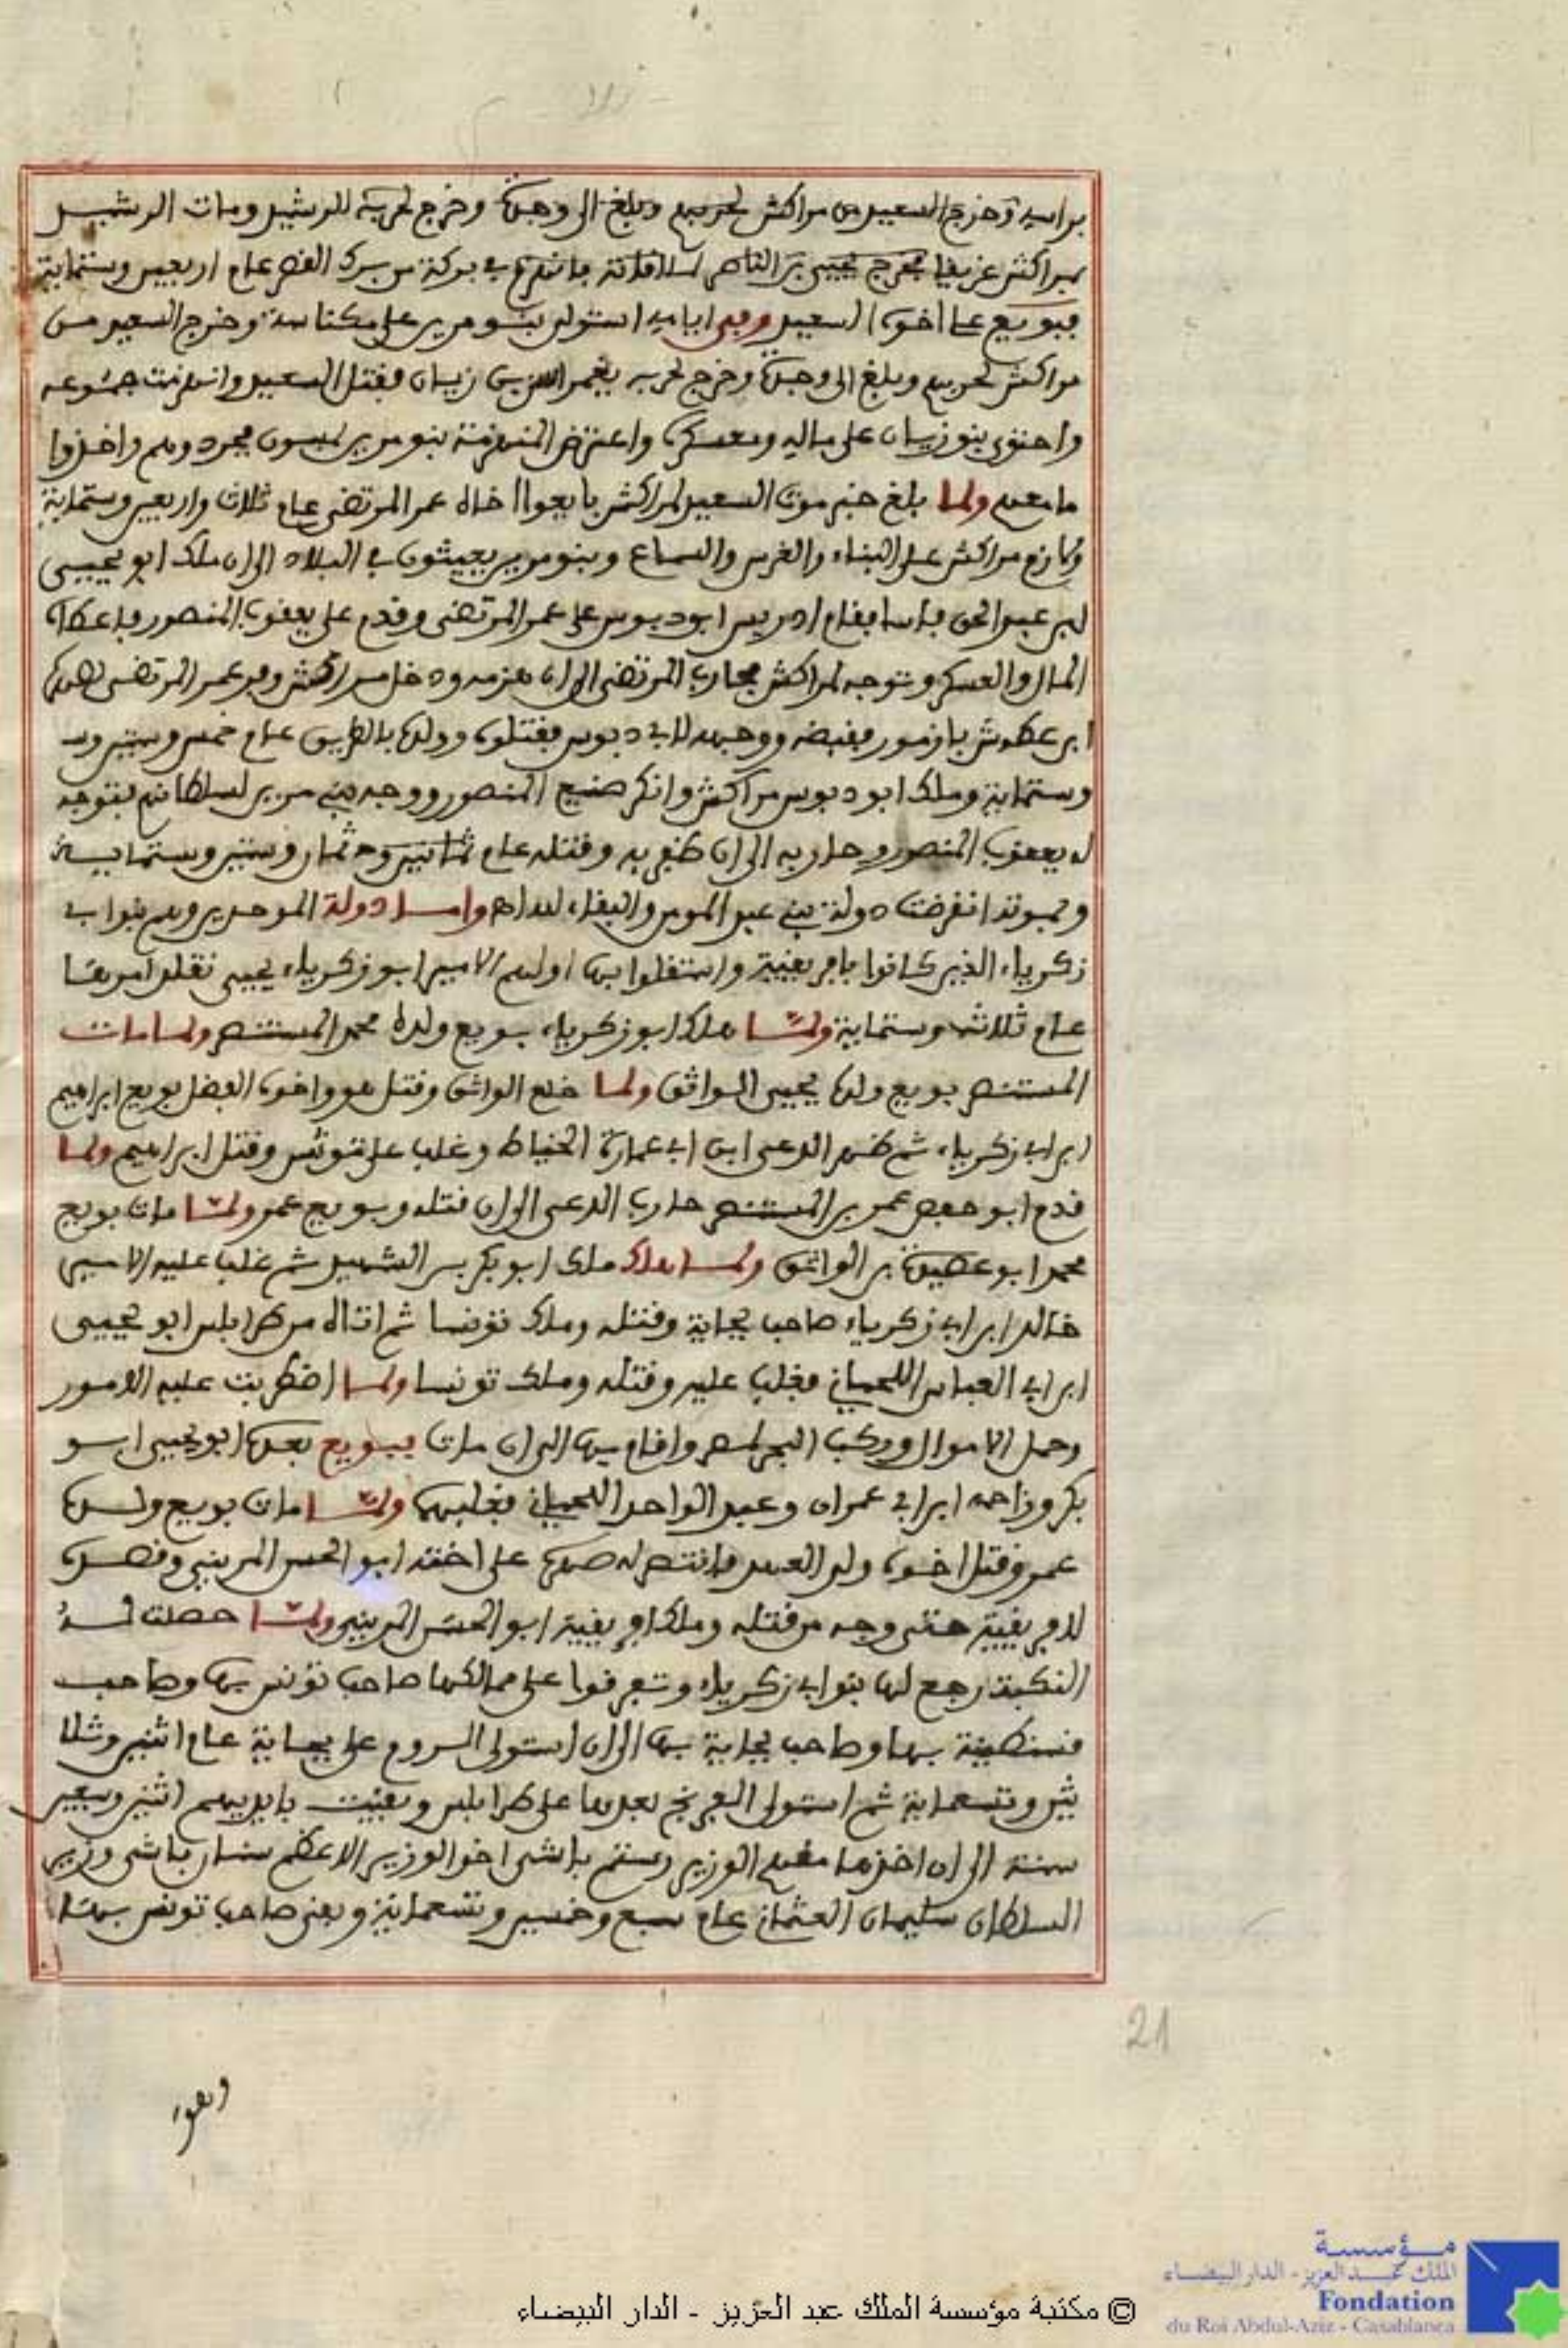 براسه وخرج السعيد من مراكش لحربهم وبلغ الى وجدة وخرج لحربه الرشيد ومات الرشيد
بمراكش غريفا فخرج يحيى بن الناصر في بركة من برك القصر عام اربعين وستماية
فبويع اخوه السعيد وفى ايامه استولى بنو مرين على مكناسة وخرج السعيد من
مراكش لحربهم وبلغ الى وجدة وخرج لحربه يغمراسن بن زيان فقتل السعيد وانهزمت جموعه
واحتوى بنو زيان على ماله ومعسكره واعترض المنهزمة بنو مرين يجردوهم واخذوا
ما معهم ولما بلغ خبر موت السعيد لمراكش بايعوا اخاه عمر المرتضى عام ثلاث واربعين وستماية
ولازم مراكش على البناء والغرس والسماع وبنو مرين يعيثون في البلاد الى ان ملك ابو يحيى
ابن عبد الحق فاسا فقام ادريس ابو دبوس على عمر المرتضى وقدم على يعقوب المنصور فاعطاه
المال والعسكر وتوجه لمراكش فحارب المرتضى الى ان هزمه ودخل مراكش وفر عمر المرتضى لصهره
ابن عطوش بازمور فقبضه ووجهه لابي دبوس فقتله وولده بالطريق عام خمس وستين
وستماية وملك ابو دبوس مراكش وانكر صنيع المنصور ووجه بني مرين لسلطانهم فتوجه
له يعقوب المنصور وحاربه الى ان ظفر به وقتله عام ثمان وستين وستماية
وبموته انقرضت دولة بني عبد المومن والبقاء لله اه واما دولة الموحدين وهم بنو ابي
زكرياء الذين كانوا بافريقية واستقلوا بها اولهم الامير ابو زكرياء يحيى تقلد امرها
عام ثلاث وستماية ولما هلك ابو زكرياء بويع ولده محمد المستنصر ولما مات
المستنصر بويع ولده يحيى الواثق ولما خلع الواثق وقتل هو واخوه الفضل بويع ابراهيم
ابن ابي زكرياء ثم ظهر الدعى ابن ابي عمارة الخياط وغلب على تونس وقتل ابراهيم ولما
قدم ابو حفص عمر بن المستنصر حارب الدعى الى ان قتله وبويع عمر ولما مات بويع
محمد ابو عصيدة بن الواثق ولما هلك ملك ابو بكر بن الشهيد ثم غلب عليه الامير
خالد ابن ابي زكرياء صاحب بجاية وقتله وملك تونسا ثم اتاه من طرابلس ابو يحيى
ابن ابي العباس اللحياني فغلب عليه وقتله وملك تونسا ولما اضطربت عليه الامور
وحمل الاموال وركب البحر لمصر واقام بها الى ان مات فبويع بعده ابو يحيى ابو
بكر وزاحمه ابن ابي عمران وعبد الواحد اللحياني فغلبهما ولما مات بويع ولده
عمر وقتل اخوه ولي العهد فانتصر له صهره على اخته ابو الحسن المريني وقصده
لافريقية حتى وجه من قتله وملك افريقية ابو الحسن المريني ولما حصلت له
النكبة رجع لها بنو ابي زكرياء وتفرقوا على ممالكها صاحب تونس بها وصاحب
قسنطينة بها وصاحب بجاية بها الى ان استولى الروم على بجاية عام اثنين وثلا
ثين وتسعماية ثم استولى الفرنج بعدها على طرابلس وبقيت بايديهم اثنين وسبعين
سنة الى ان اخذها منهم الوزير رستم باشى اخو الوزير الاعظم سنان باشى وزير
السلطان سليمان العثماني عام سبع وخمسين وتسعماية وبقى صاحب تونس بها
وهو
21
مؤسسة
الملك عبد العزيز - الدار البيضاء
Fondation
du Roi Abdul-Aziz - Casablanca
© مكتبة مؤسسة الملك عبد العزيز - الدار البيضاء